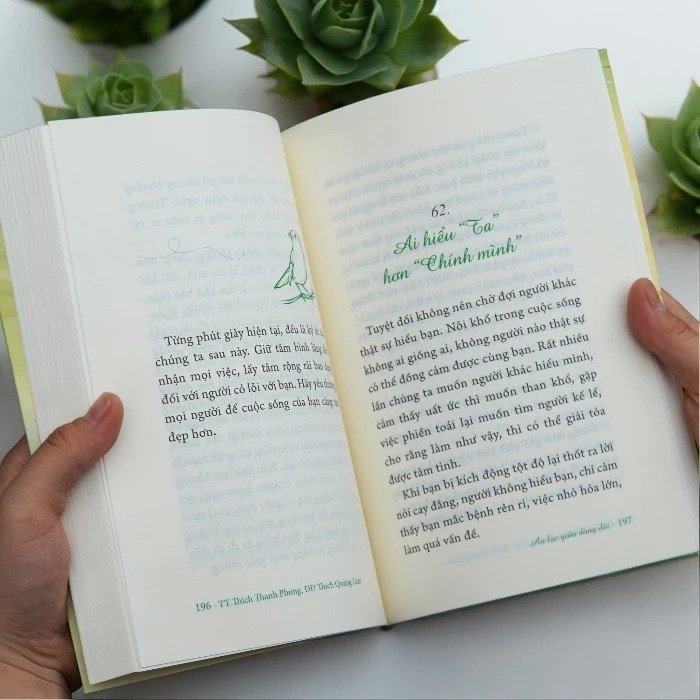 Từng phút giây hiện tại, đều là
chúng ta sau này. Giữ tâm bình
nhận mọi việc, lấy tấm rộng rãi bao
đối với người có lỗi với bạn. Hãy yêu
mọi người để cuộc sống của bạn càng
đẹp hơn.
196 - TT Thích Thanh Phong, ĐĐ Thích Quảng Lâm
62.
Ai hiểu "Ta"
hơn "Chính mình"
Tuyệt đối không nên chờ đợi người khác
thật sự hiểu bạn. Nỗi khổ trong cuộc sống
không ai giống ai, không người nào thật sự
có thể đồng cảm được cùng bạn. Rất nhiều
lần chúng ta muốn người khác hiểu mình,
cảm thấy uất ức thì muốn than khổ, gặp
việc phiền toái lại muốn tìm người kể lể,
cho rằng làm như vậy, thì có thể giải tỏa
được tâm tình.
Khi bạn bị kích động tột độ lại thốt ra lời
nói cay đắng, người không hiểu bạn, chỉ cảm
thấy bạn mắc bệnh rên rỉ, việc nhỏ hóa lớn,
làm quá vấn đề.
An lạc giữa dòng đời - 197